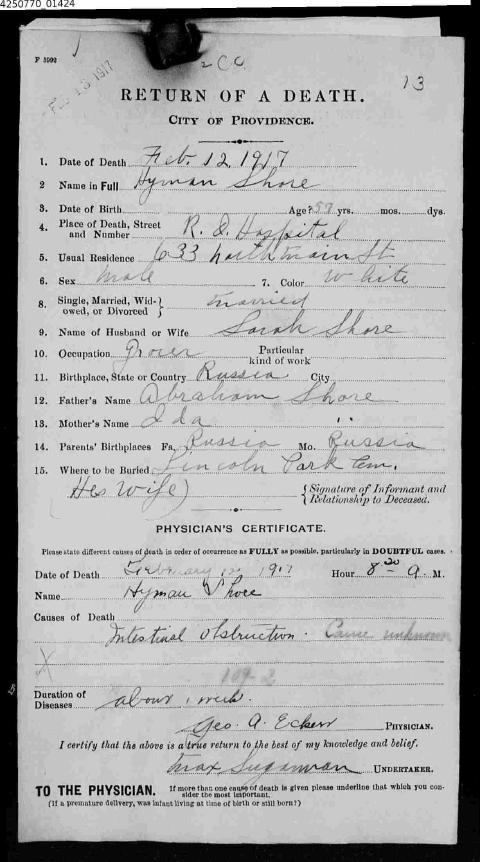 4250770_01424
F 5992
FEB 13 1917
13
RETURN OF A DEATH.
CITY OF PROVIDENCE.
1. Date of Death Feb. 12, 1917
2 Name in Full Hyman Shore
3. Date of Birth Age? 57 yrs. mos. dys.
4. Place of Death, Street and Number R. I. Hospital
5. Usual Residence 633 North Main St
6. Sex Male 7. Color White
8. Single, Married, Widowed, or Divorced } Married
9. Name of Husband or Wife Sarah Shore
10. Occupation Grocer Particular kind of work
11. Birthplace, State or Country Russia City
12. Father's Name Abraham Shore
13. Mother's Name Ida "
14. Parents' Birthplaces Fa. Russia Mo. Russia
15. Where to be Buried Lincoln Park Cem.
(His Wife) { Signature of Informant and Relationship to Deceased.
PHYSICIAN'S CERTIFICATE.
Please state different causes of death in order of occurrence as FULLY as possible, particularly in DOUBTFUL cases.
Date of Death February 12, 1917 Hour 8 20 a M.
Name Hyman Shore
Causes of Death
Intestinal obstruction. Cause unknown
X
109-2
Duration of Diseases about 1 week.
Geo. A. Eckert PHYSICIAN.
I certify that the above is a true return to the best of my knowledge and belief.
Max Sugarman UNDERTAKER.
TO THE PHYSICIAN. If more than one cause of death is given please underline that which you consider the most important.
(If a premature delivery, was infant living at time of birth or still born?)